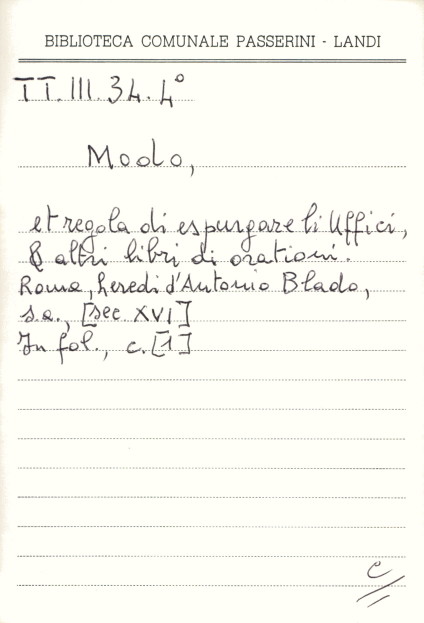 BIBLIOTECA COMUNALE PASSERINI - LANDI
TT.III.34.4°
Modo,
et regola di espurgare li Uffici,
& altri libri di orationi.
Roma, heredi d'Antonio Blado,
s.a., [sec. XVI]
In fol., c. [1]
C